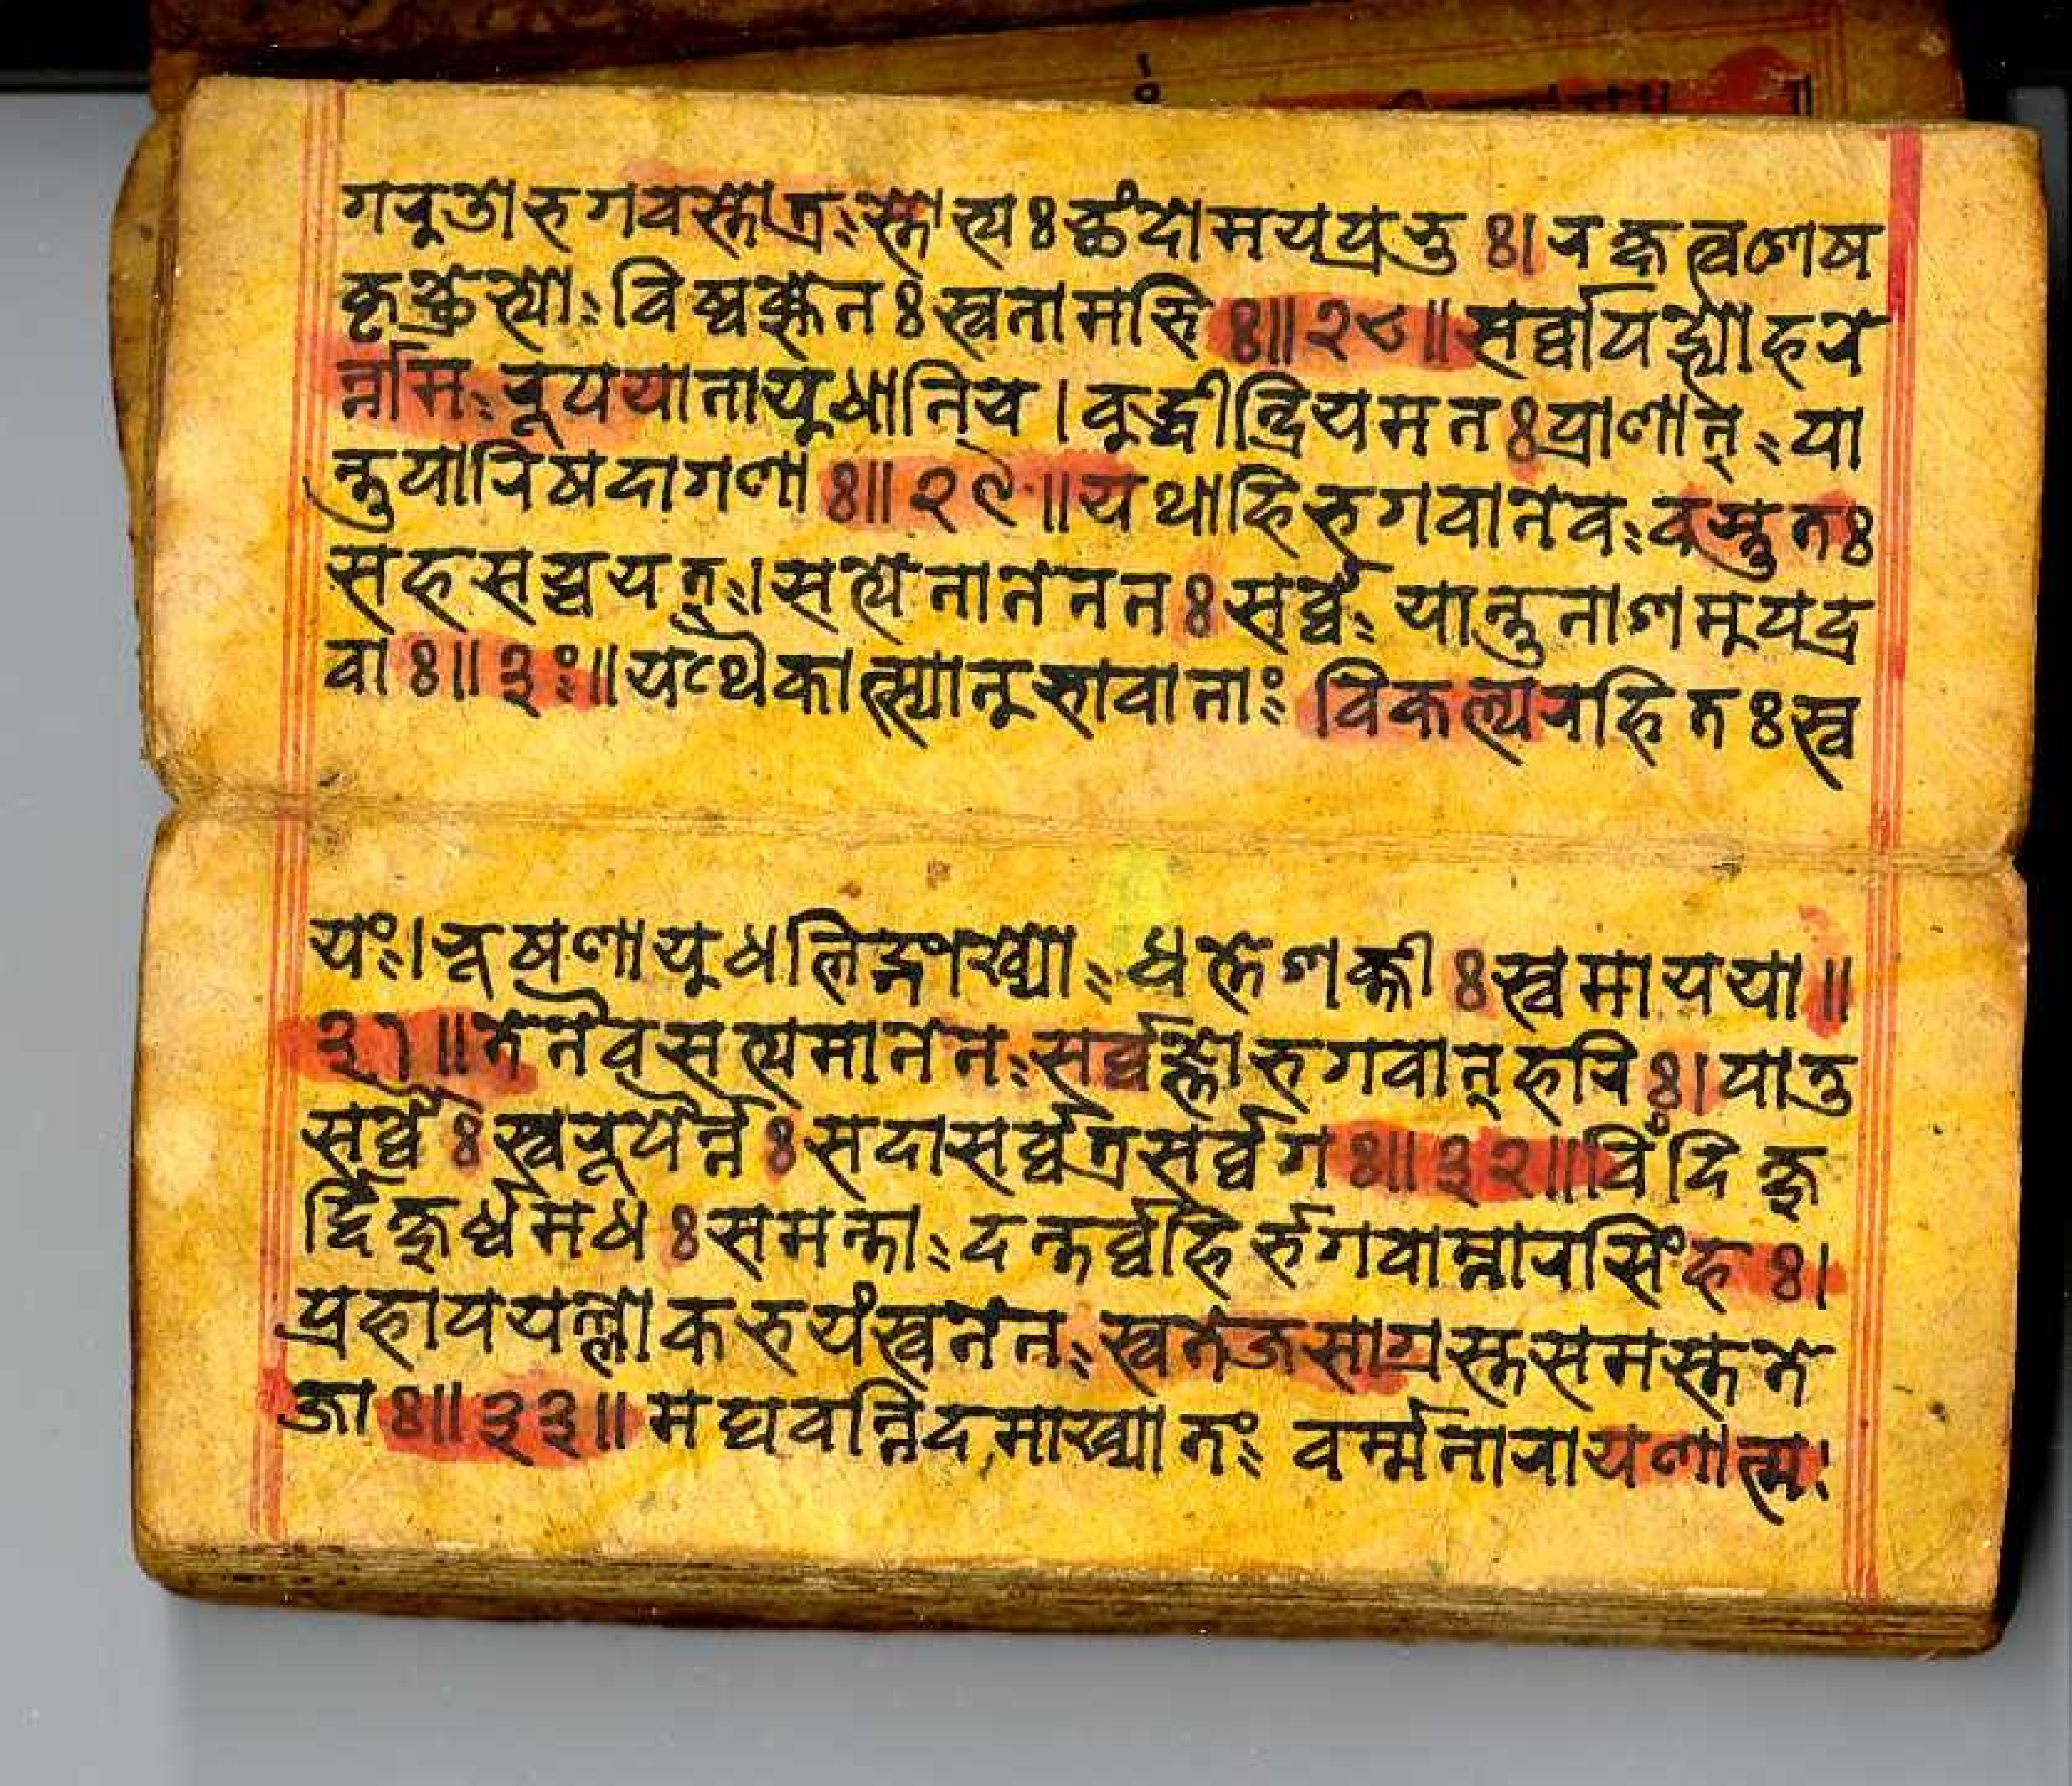 गरुडोभगवस्तोत्रःस्तोत्यः छंदोमयप्रभुः।रक्षत्वशेष
कृछ्रेभ्योःविष्वक्षेनः स्वनामभिः॥२८॥सर्व्वापद्भ्योहरे
र्न्नामःरूपयानायुधानिच।बुद्धीन्द्रियमनःप्राणान्ःपा
न्तुपारिषदागणाः॥२९॥यथाहिभगवानेवःवस्तुतः
सहसच्चयत्ः।सत्येनानेननः सर्व्वेः यान्तुनाशमुपद्र
वाः॥३०॥यथैकात्म्यानुभावानांः विकल्परहितः स्व
यंः।भूषणायुधलिङ्गाख्याः धत्तेशक्तीः स्वमायया॥
३१॥तेनैवसत्यमानेनःसर्व्वज्ञोभगवान्हरिः।पातु
सर्व्वैः स्वरूपैर्न्नः सदासर्व्वत्रसर्व्वगः॥३२॥विंदिक्षु
दिक्षूर्ध्वमधः समन्ताःदन्तर्व्वहिर्भगवान्नारसिंहः।
प्रहापयल्लोकभयंस्वनेनःस्वतेजसाग्रस्तसमस्तते
जाः॥३३॥मघवन्निदमाख्यातंः वर्म्मनारायणात्म